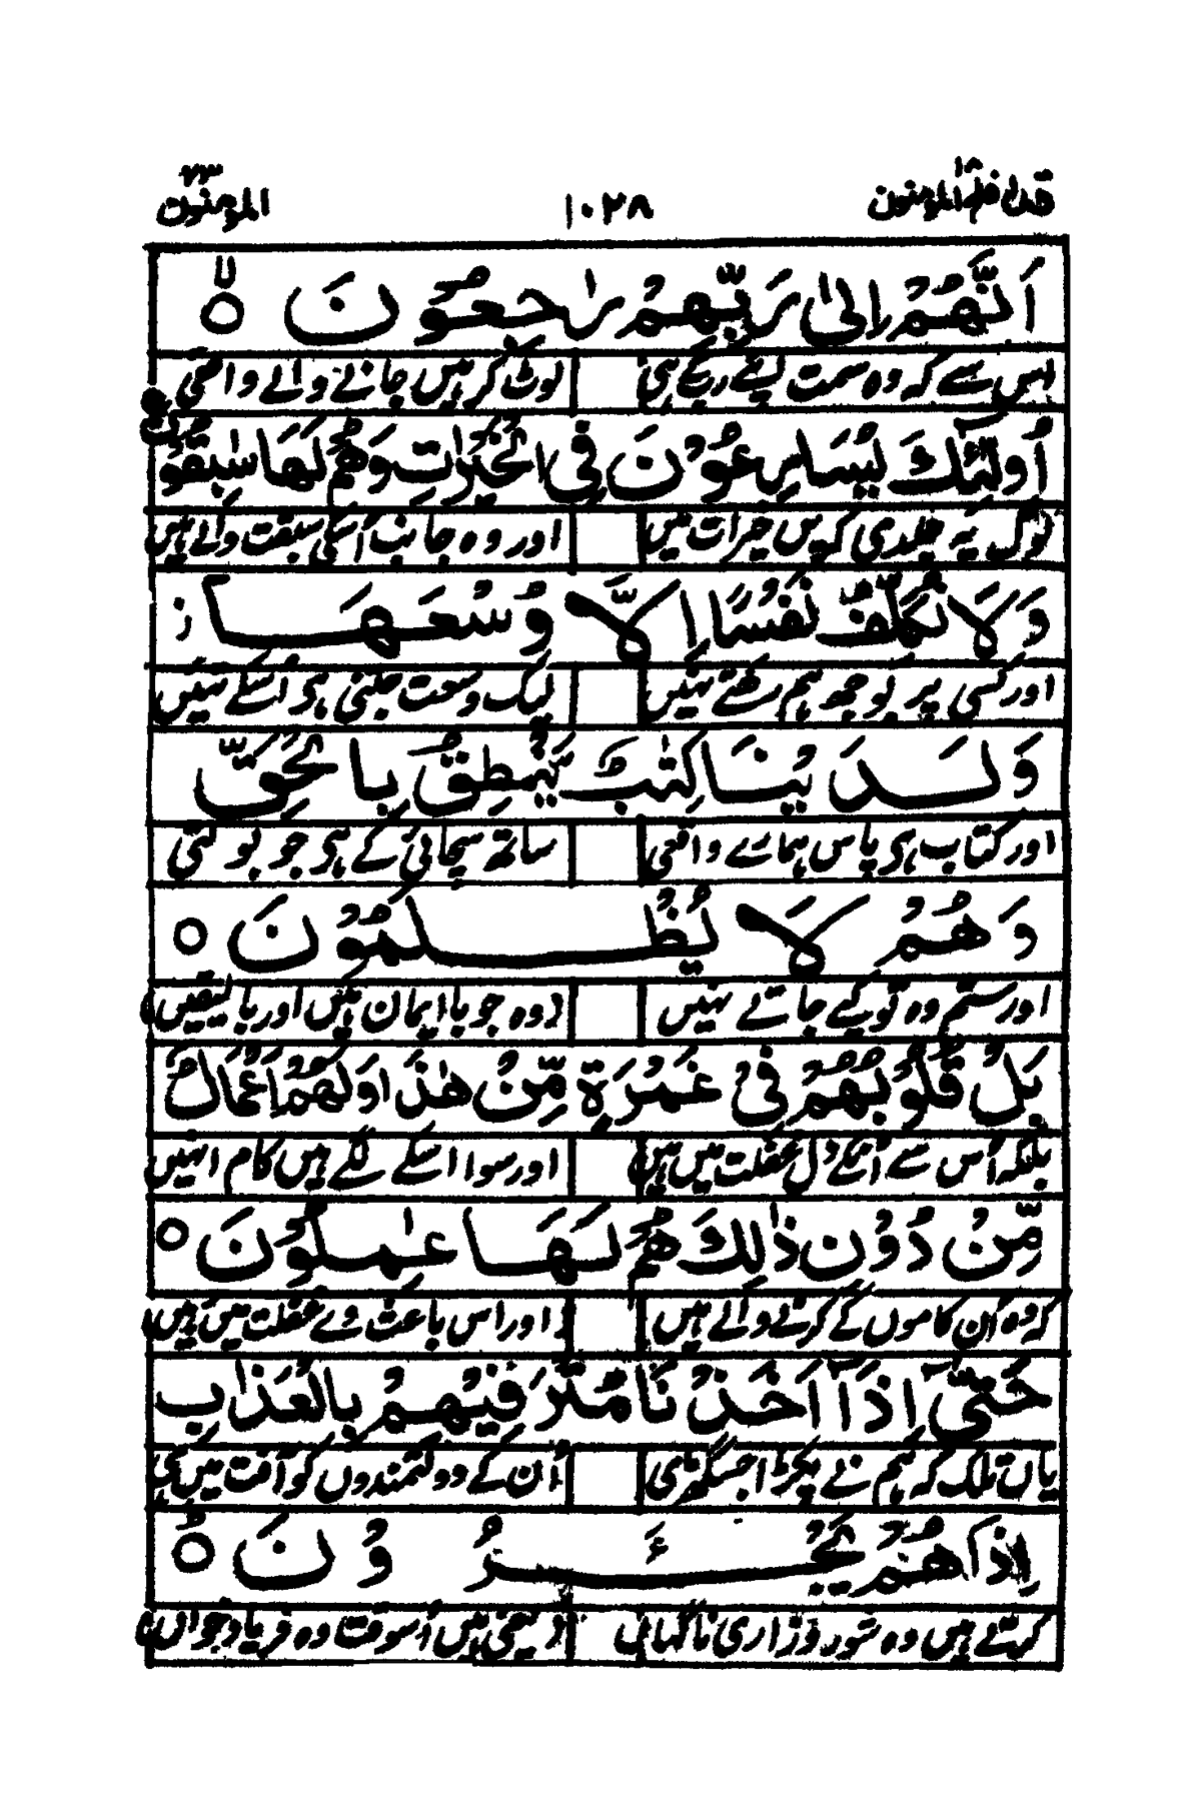 قد افلح ١٨ المؤمنون ١٠٢٨ المؤمنون ٢٣
اَنَّهُمْ اِلٰى رَبِّهِمْ رٰجِعُوْنَ ۝
اس سے کہ وہ سمت اپنے رب کے ہی لوٹ کر ہیں جانے والے واقعی
اُولٰٓئِكَ يُسَارِعُوْنَ فِى الْخَيْرٰتِ وَهُمْ لَهَا سٰبِقُوْنَ
لوگ یہ جلدی کریں خیرات میں اور وہ جانب اسکی سبقت والے ہیں
وَلَا نُكَلِّفُ نَفْسًا اِلَّا وُسْعَهَا
اور کسی پر بوجھ ہم رکھتے نہیں لیک وسعت جتنی ہے اسکے تئیں
وَلَدَيْنَا كِتٰبٌ يَّنْطِقُ بِالْحَقِّ
اور کتاب ہے پاس ہمارے واقعی ساتھ سچائی کے ہے جو بولتی
وَهُمْ لَا يُظْلَمُوْنَ ۝
اور ستم وہ تو کیے جاتے نہیں (وہ جو با ایمان ہیں اور با یقیں)
بَلْ قُلُوْبُهُمْ فِىْ غَمْرَةٍ مِّنْ هٰذَا وَلَهُمْ اَعْمَالٌ
بلکہ اس سے انکے دل غفلت میں ہیں اور سوا اسکے لگے ہیں کام انہیں
مِّنْ دُوْنِ ذٰلِكَ هُمْ لَهَا عٰمِلُوْنَ ۝
کہ وہ ان کاموں کے کرنے والے ہیں (اور اس باعث وے غفلت میں ہیں)
حَتّٰىٓ اِذَآ اَخَذْنَا مُتْرَفِيْهِمْ بِالْعَذَابِ
یاں تلک کہ ہم نے پکڑا جس گھڑی ان کے دولتمندوں کو آفت میں
اِذَا هُمْ يَجْـَٔرُوْنَ ۝
کرتے ہیں وہ شور و زاری ناگہاں ہیں اسوقت وہ فریاد خواں